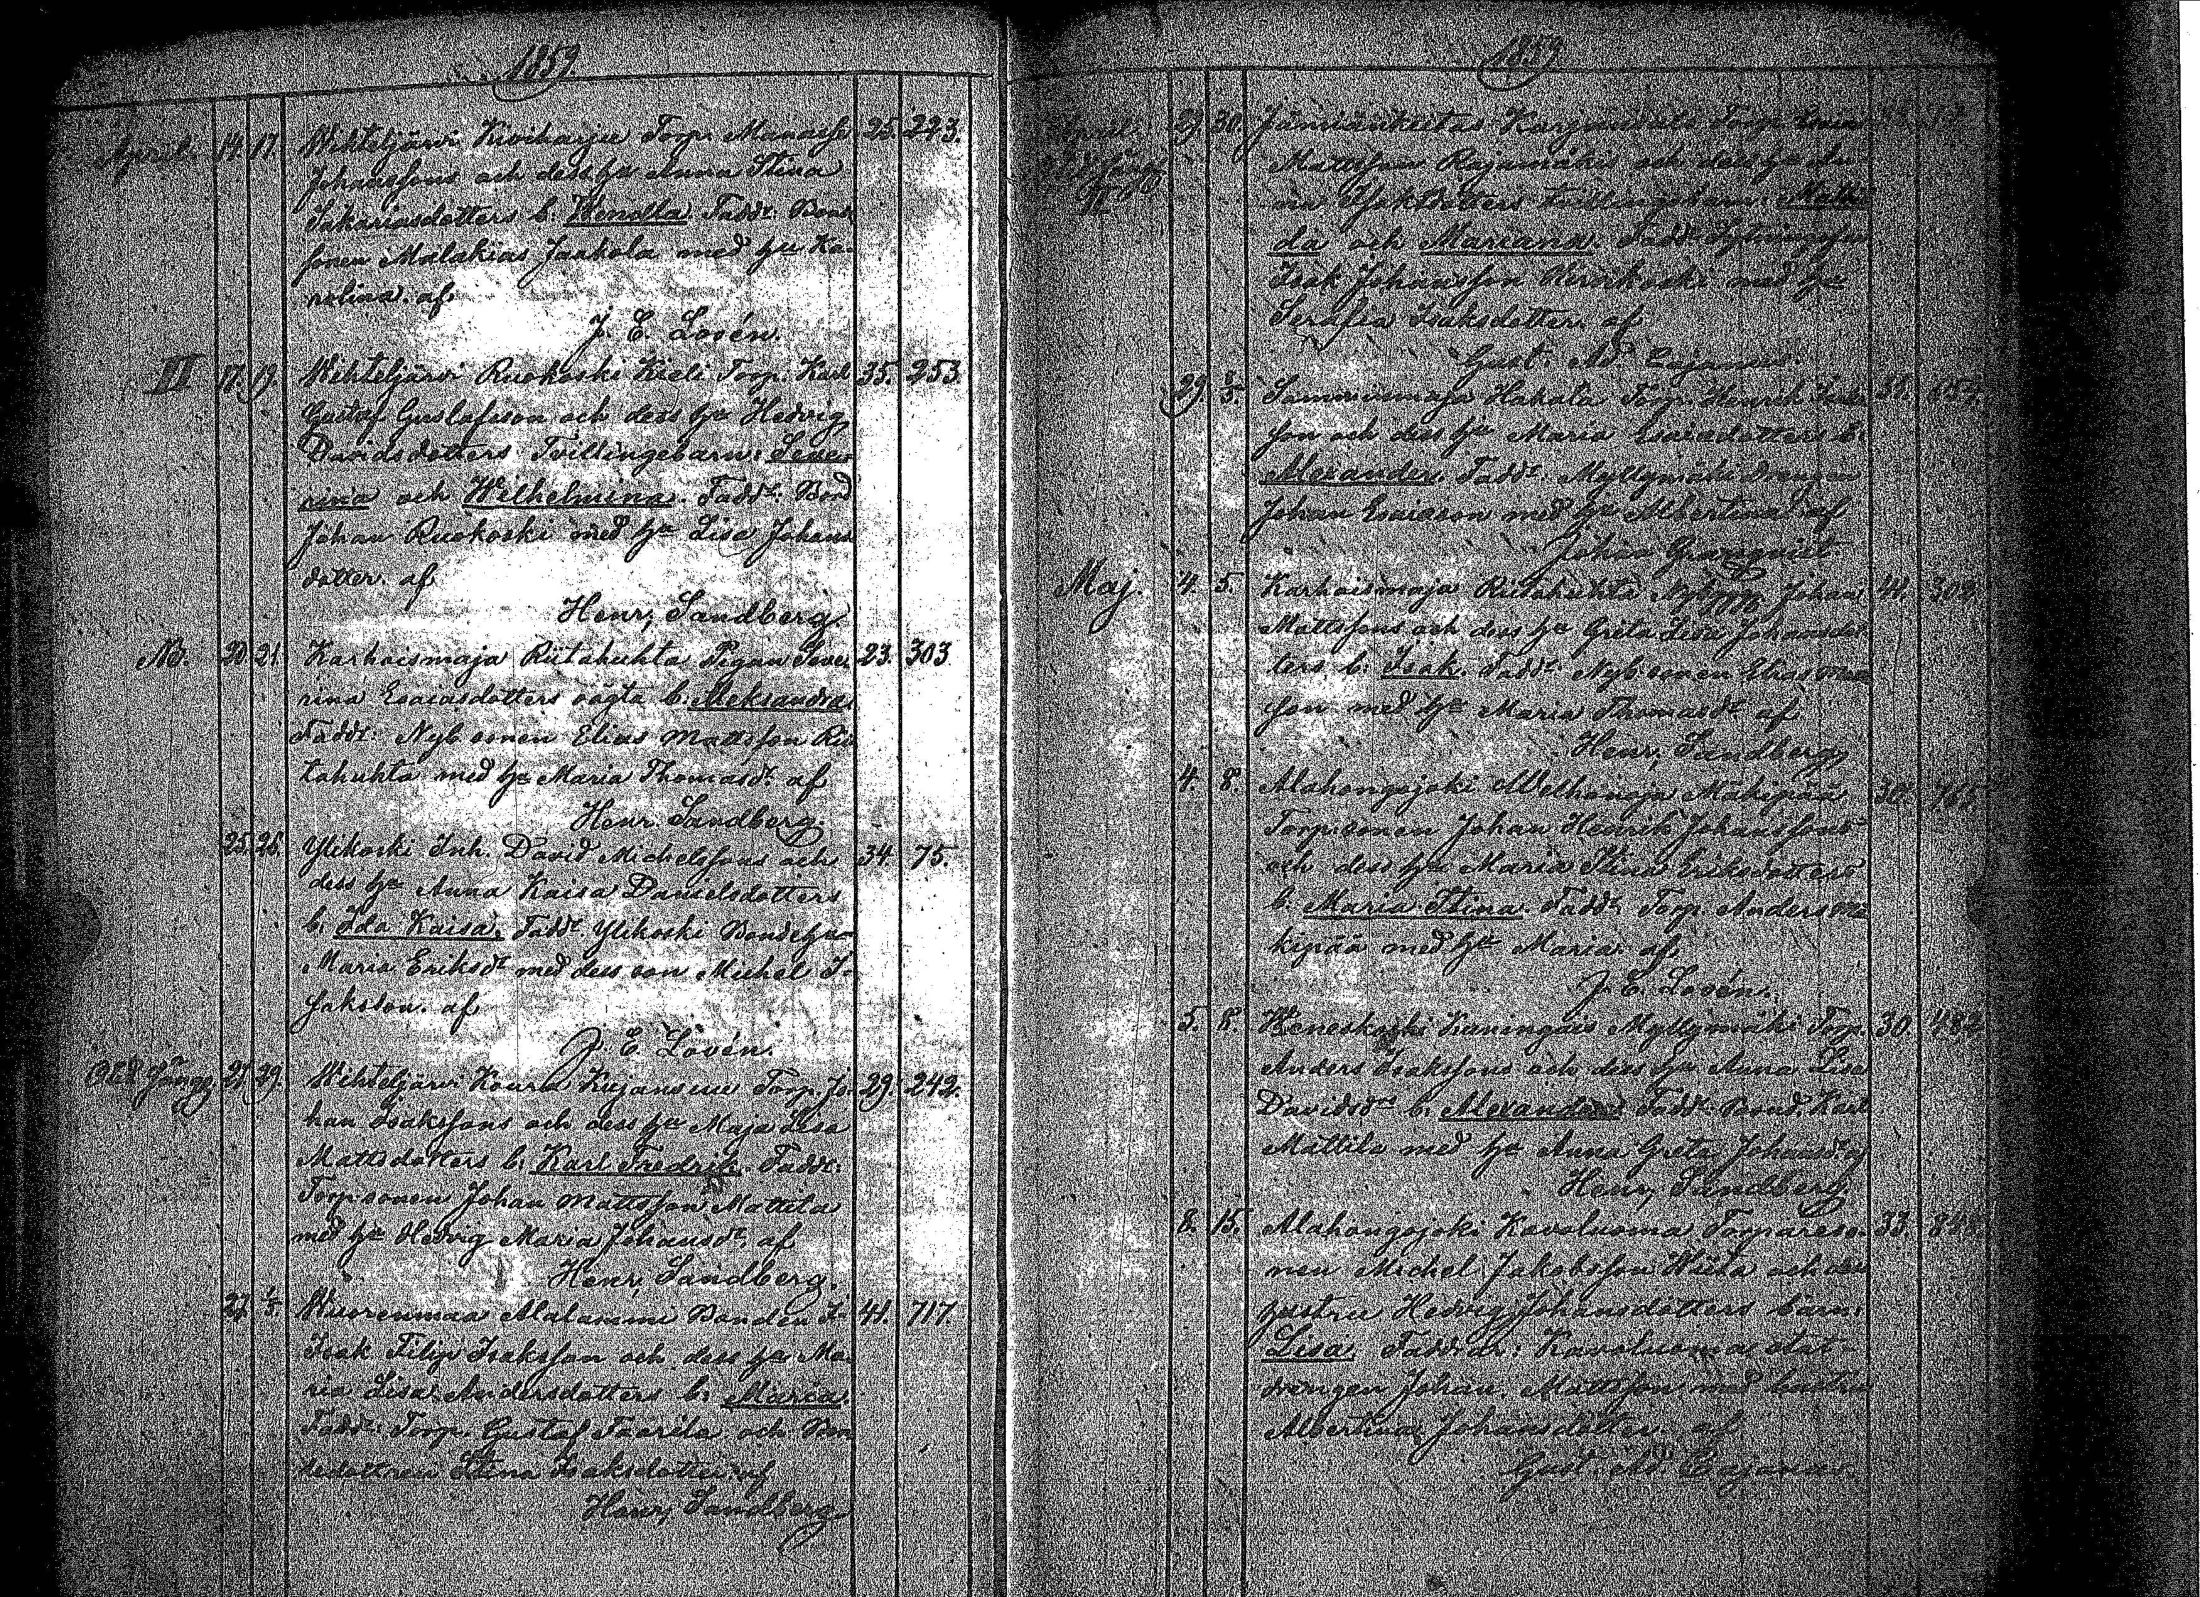 1859.
April. 14. 17. Wihteljärvi Kiviharju Torp. Manasse 25. 223.
Johanssons och dess hu Anna Stina
Sakariasdotters b. Wendla. Fadd: Bond
sonen Malakias Jaakola med hu Ka-
rolina. af
J. E. Lovén.
II 17. 19. Wihteljärvi Ruokoski Kieli Torp. Karl 35. 253.
Gustaf Gustafsson och dess hu Hedvig
Davidsdotters Tvillingebarn: Seve-
rina och Wilhelmina. Fadd: Bond
Johan Ruokoski med hu Lisa Johans
dotter. af
Henr, Sandberg.
No. 20. 21. Karhoismaja Riitahuhta Pigan Seve- 23. 303.
rina Esaiasdotters oägta b. Aleksandra
Fadd: Nyb sonen Elias Mattsson Rii
tahuhta med hu Maria Thomasdr. af
Henr. Sandberg.
25. 26. Ylikoski Inh. David Michelssons och 34. 75.
dess hu Anna Kaisa Danielsdotters
b. Ida Kaisa. Fadd: Ylikoski Bondehu
Maria Eriksdr med dess son Michel I-
saksson. af
J. E. Lovén.
27. 29. Wihteljärvi Koura Kujansuu Torp. Jo- 29. 242.
han Isakssons och dess hu Maja Lisa
Mattsdotters b. Karl Fredrik. Fadd:
Torp sonen Johan Mattsson Mattila
med hu Hedvig Maria Johansdr. af
Henr, Sandberg.
27. 1/5. Wuorenmaa Alalammi Bonden I- 41. 717.
Isak Filip Isaksson och dess hu Ma-
ria Lisa Andersdotters b. Maria.
Fadd: Torp. Gustaf Faarila och Bon
dedottren Stina Isaksdotter. af
Henr, Sandberg
1859
April. 29. 30. Jämiänkeitas Karjanmäki Torp.
Mattsson Rajamäki och dess hu An-
na Isaksdotters tvillingebarn: Mathil
da och Mariana. Fadd:
Isak Johansson med hu
Serafia Isaksdotter. af
Gust. Ad. Cajanus.
29. 1/5. Hakala Torp. Henrik Isaks 38.
son och dess hu Maria Esaiasdotters b.
Alexander. Fadd: Myllymäki drengen
Johan Esaiasson med hu Albertina af
Johan Granqvist.
Maj. 4. 5. Karhoismaja Riitahuhta Johan 41. 302.
Mattssons och dess hu Greta Lisa Johansdot
ters b. Isak. Fadd: Nyb sonen Elias Matts
son med hu Maria Thomasdr. af
Henr, Sandberg
4. 8. Alahongojoki Welhonoja Mäkipää 30.
Torp. sonen Johan Henrik Johanssons
och dess hu Maria Stina Eriksdotters
b. Maria Stina. Fadd: Torp. Anders Mä
kipää med hu Maria. af
J. E. Lovén.
5. 8. Weneskoski Kuningais Myllymäki Torp. 30. 482
Anders Isakssons och dess hu Anna Lisa
Davidsdr b. Fadd: Bond. Karl
Mattila med hu Anna Greta Johansdr. af
Henr, Sandberg
8. 15. Alahongojoki Kavoluoma Torpareso- 33.
nen Michel Jakobsson och dess
hustru Hedvig Johansdotters barn:
Lisa. Faddrar: Kavoluoma
drengen Johan Mattsson med hustru
Albertina Johansdotter. af
Gust. Ad. Cajanus